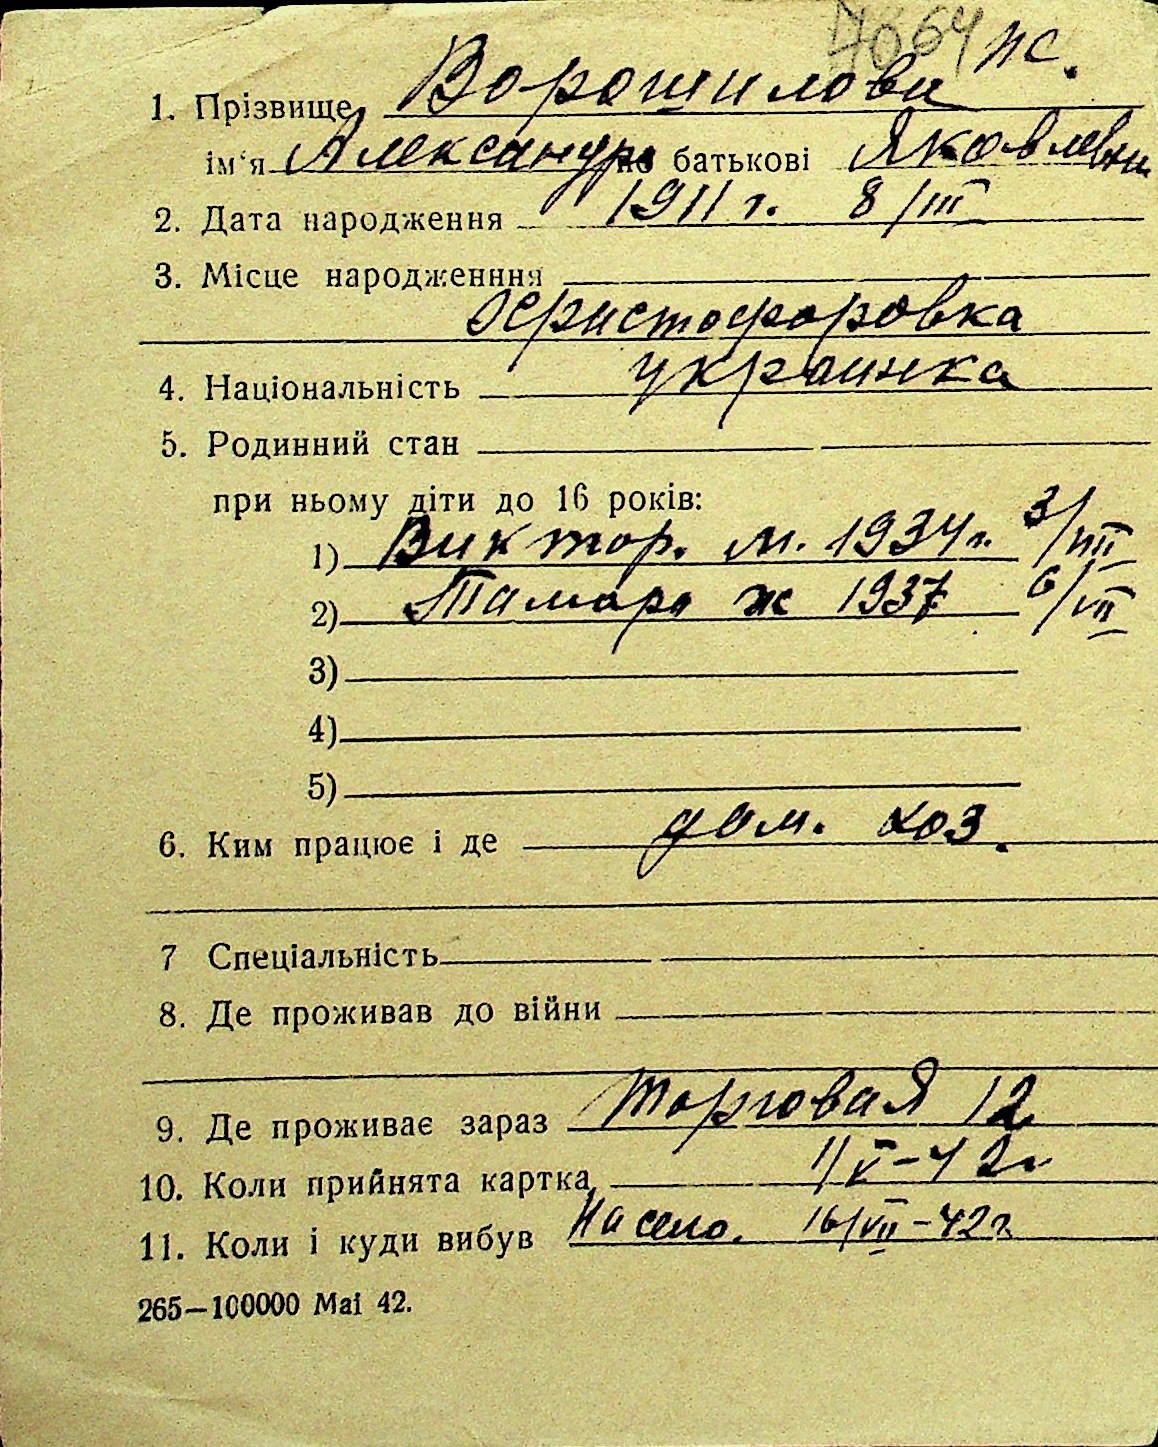 4664 ж.
1. Прізвище Ворошилова
ім'я Александра по батькові Яковлевна
2. Дата народження 1911 г. 8/III
3. Місце народженння
Христофоровка
4. Національність украинка
5. Родинний стан
при ньому діти до 16 років:
1) Виктор. м. 1934 г. 3/VIII
2) Тамара ж 1937 6/VII
3)
4)
5)
6. Ким працює і де дом. хоз.
7 Спеціальність
8. Де проживав до війни
9. Де проживає зараз Торговая 12
10. Коли прийнята картка 1/V-42г
11. Коли і куди вибув На село. 16/VII-42 г.
265—100000 Mai 42.